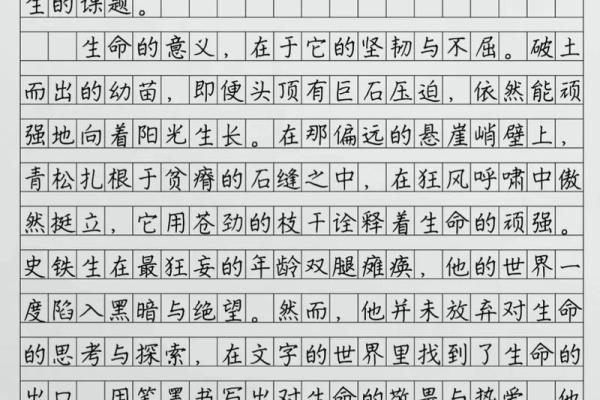 生的课题。
生命的意义，在于它的坚韧与不屈。破土
而出的幼苗，即便头顶有巨石压迫，依然能顽
强地向着阳光生长。在那偏远的悬崖峭壁上，
青松扎根于贫瘠的石缝之中，在狂风呼啸中傲
然挺立，它用苍劲的枝干诠释着生命的顽强。
史铁生在最狂妄的年龄双腿瘫痪，他的世界一
度陷入黑暗与绝望。然而，他并未放弃对生命
的思考与探索，在文字的世界里找到了生命的
出口，用笔墨书写出对生命的敬畏与热爱。他